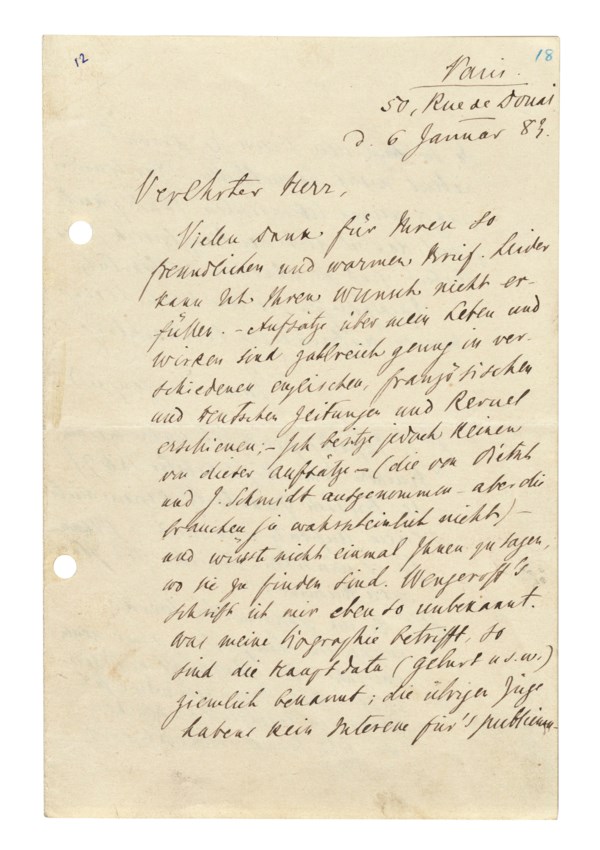 12
18
Paris.
50, Rue de Douai
d. 6 Januar 83.
Verehrter Herr,
Vielen Dank für Ihren so
freundlichen und warmen Brief. Leider
kann ich Ihren Wunsch nicht er-
füllen. – Aufsätze über mein Leben und
Wirken sind zahlreich genug in ver-
schiedenen englischen, französischen
und deutschen Zeitungen und Revuen
erschienen; – Ich besitze jedoch keinen
von dieser Aufsätze – (die von Pietsch
und J. Schmidt ausgenommen – aber die
brauchen sie wahrscheinlich nicht) –
und wüsste nicht einmal Ihnen zu sagen,
wo sie zu finden sind. Wengeroff's
Schrift ist mir eben so unbekannt.
Was meine Biographie betrifft, so
sind die Hauptdata (Geburt u.s.w.)
ziemlich bekannt; die übrigen Züge
haben kein Interesse für's Publicum –